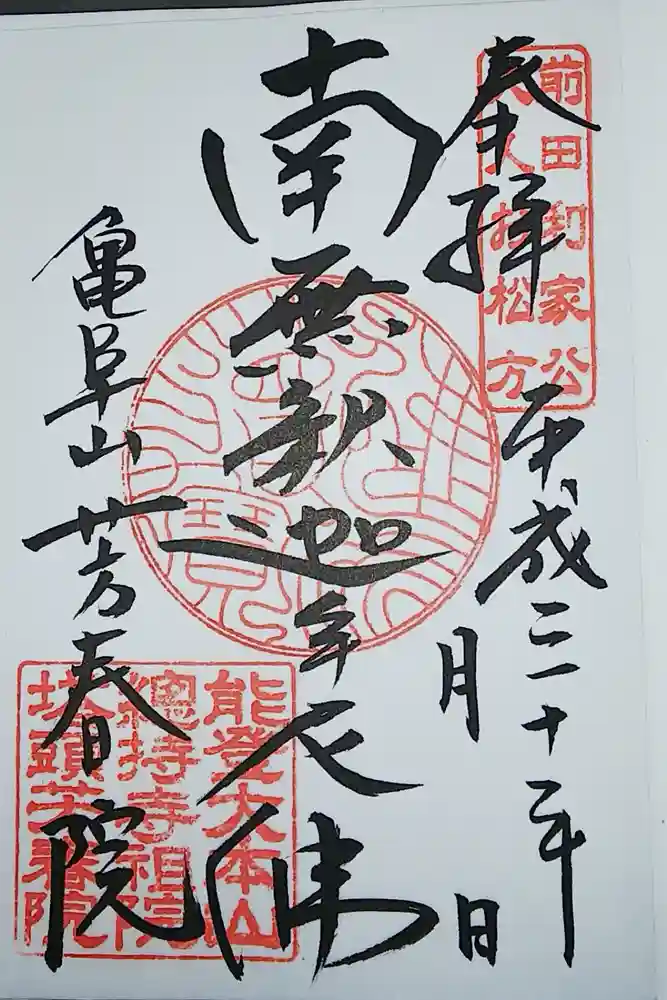 奉拝
前田利家公
夫人お松方
平成三十年
月
日
南無釈迦牟尼佛
亀阜山
芳春院
能登大本山
總持寺祖院
塔頭芳春院